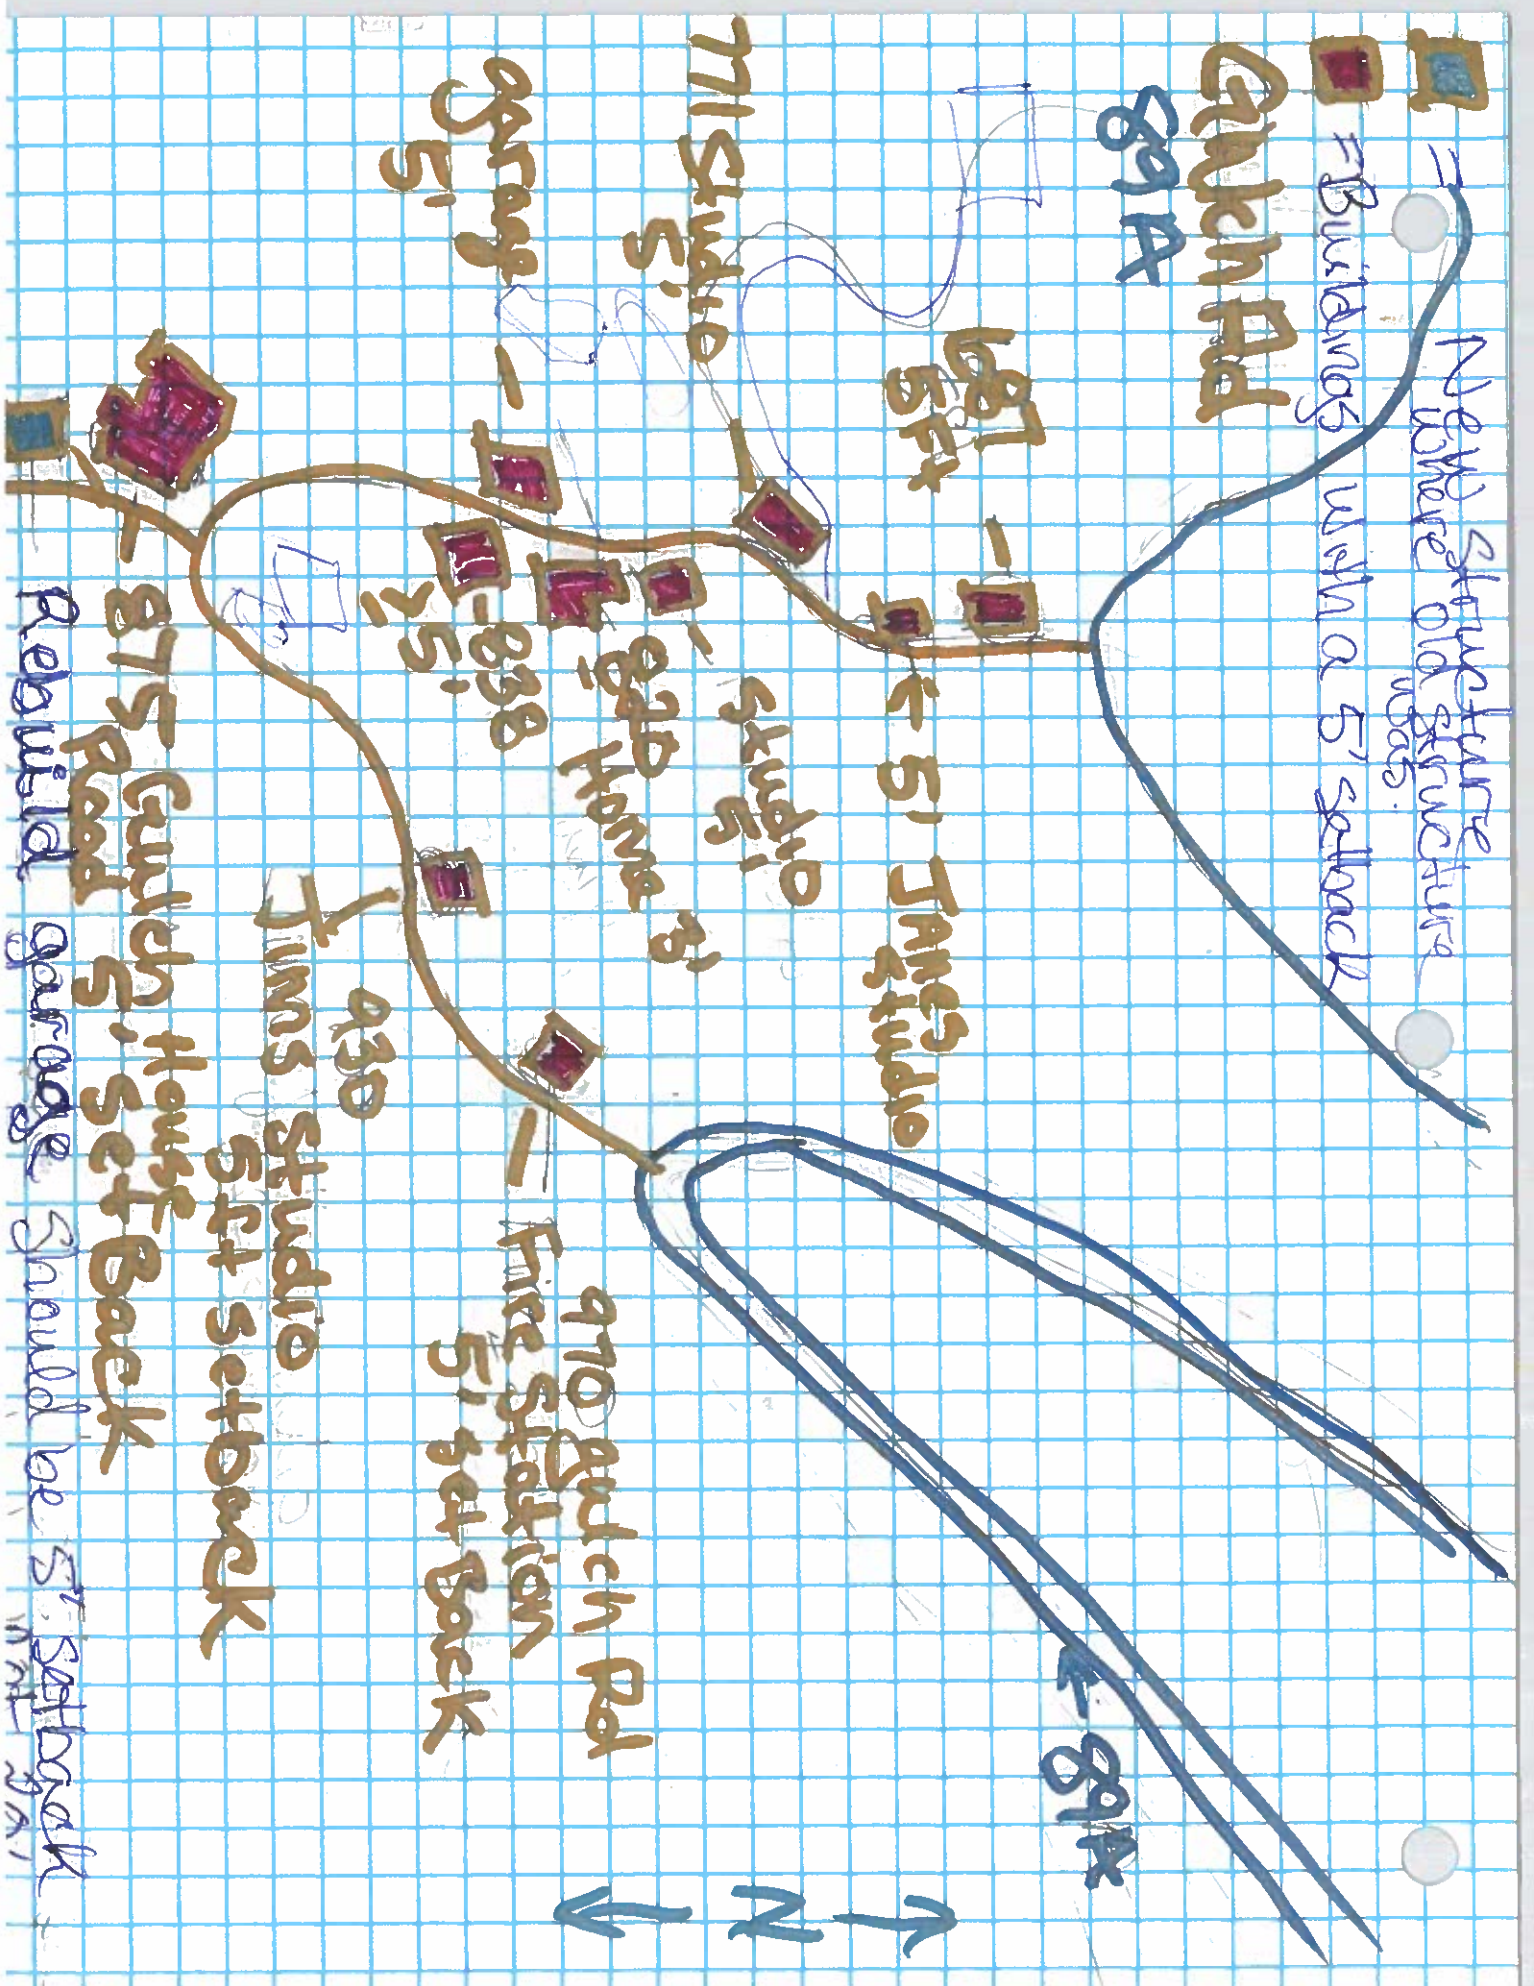 = New Structure
where old structure
was.
= Buildings with a 5' setback
Gulch Rd
89A
687
5Ft
771 Studio
5'
garage
5'
← 5' Janes
Studio
Studio
5'
820
Home 3'
838
25'
930
Jims Studio
5ft setback
970 gulch Rd
Fire Station
5' set Back
89A
N
875 Gulch House
Road 5' Set Back
Rebuild garage should be 5' setback
not 20'